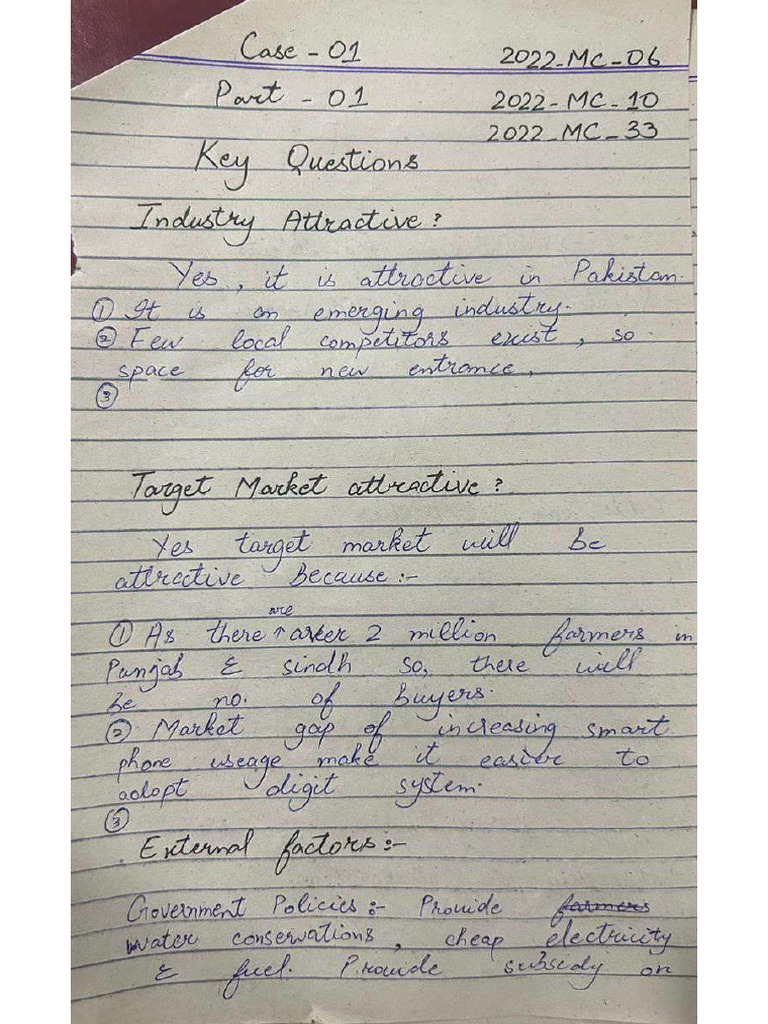 Case - 01 2022-MC-06
Part - 01 2022-MC-10
2022-MC-33
Key Questions
Industry Attractive?
Yes, it is attractive in Pakistan.
① It is an emerging industry.
② Few local competitors exist, so
space for new entrance,
③
Target Market attractive?
Yes target market will be
attractive Because:-
are
① As there ↑ 2 million farmers in
Punjab & sindh so, there will
be no. of buyers.
② Market gap of increasing smart
phone useage make it easier to
adopt digit system.
③
External factors:-
Government Policies:- Provide farmers
water conservations, cheap electricity
& fuel. Provide subsedy on